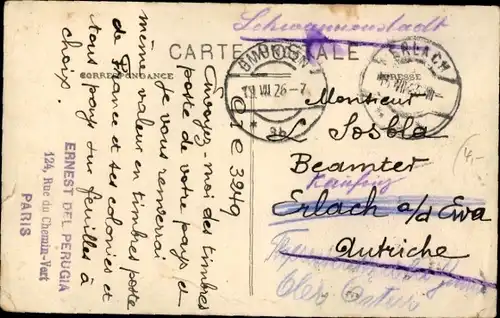 Schwanenstadt
CARTE POSTALE
CORRESPONDANCE
ADRESSE
Envoyez-moi des timbres
poste de votre pays et
je vous renverrai
même valeur en timbres poste
de France et ses colonies et
tous pays sur feuilles à
choix.
C I e 3249
ERNEST DEL PERUGIA
124, Rue du Chemin-Vert
PARIS
GMUNDEN
19 VII 26-7
* 3b
ERLACH
Monsieur
L. Sosbla
Beamter
Kaufing
Erlach a/d
Autriche
4,-